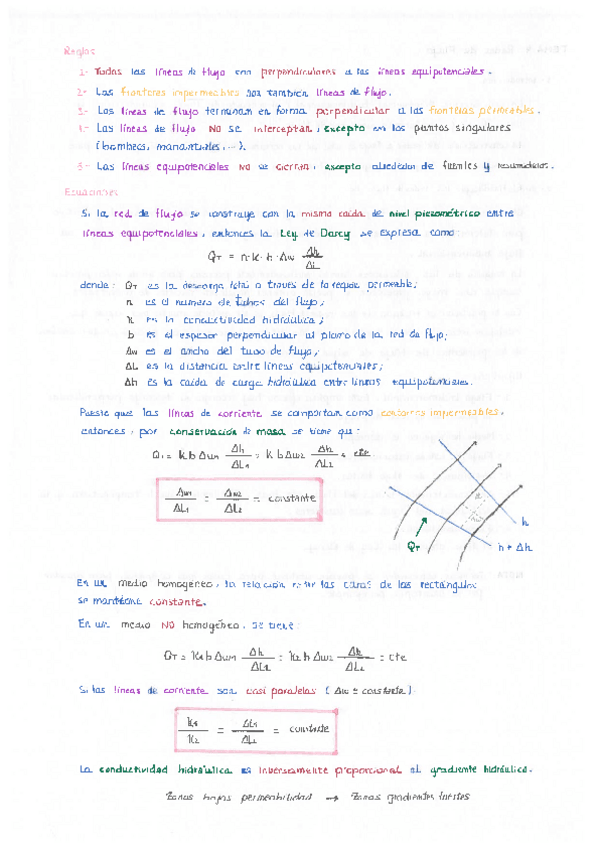 Reglas
1- Todas las líneas de flujo son perpendiculares a las líneas equipotenciales.
2- Las fronteras impermeables son también líneas de flujo.
3- Las líneas de flujo terminan en forma perpendicular a las fronteras permeables.
4- Las líneas de flujo NO se interceptan, excepto en los puntos singulares
(bombeos, manantiales, ...).
5- Las líneas equipotenciales NO se cierran, excepto alrededor de fuentes y resumideros.
Ecuaciones
Si la red de flujo se construye con la misma caída de nivel piezométrico entre
líneas equipotenciales, entonces la Ley de Darcy se expresa como
QT = n·K·b·Δw Δh/ΔL
donde: QT es la descarga total a través de la región permeable;
n es el número de tubos del flujo;
K es la conductividad hidráulica;
b es el espesor perpendicular al plano de la red de flujo;
Δw es el ancho del tubo de flujo;
ΔL es la distancia entre líneas equipotenciales;
Δh es la caída de carga hidráulica entre líneas equipotenciales.
Puesto que las líneas de corriente se comportan como contornos impermeables,
entonces, por conservación de masa se tiene que:
Q1 = K b Δw1 Δh/ΔL1 = K b Δw2 Δh/ΔL2 = cte
Δw1/ΔL1 = Δw2/ΔL2 = constante
h
QT
h + Δh
En un medio homogéneo, la relación entre las caras de los rectángulos
se mantiene constante.
En un medio NO homogéneo, se tiene:
QT = K1 b Δw1 Δh/ΔL1 = K2 b Δw2 Δh/ΔL2 = cte
Si las líneas de corriente son casi paralelas (Δw ≈ constante):
K1/K2 = ΔL1/ΔL2 = constante
La conductividad hidráulica es inversamente proporcional al gradiente hidráulico.
Zonas bajas permeabilidad → Zonas gradientes fuertes